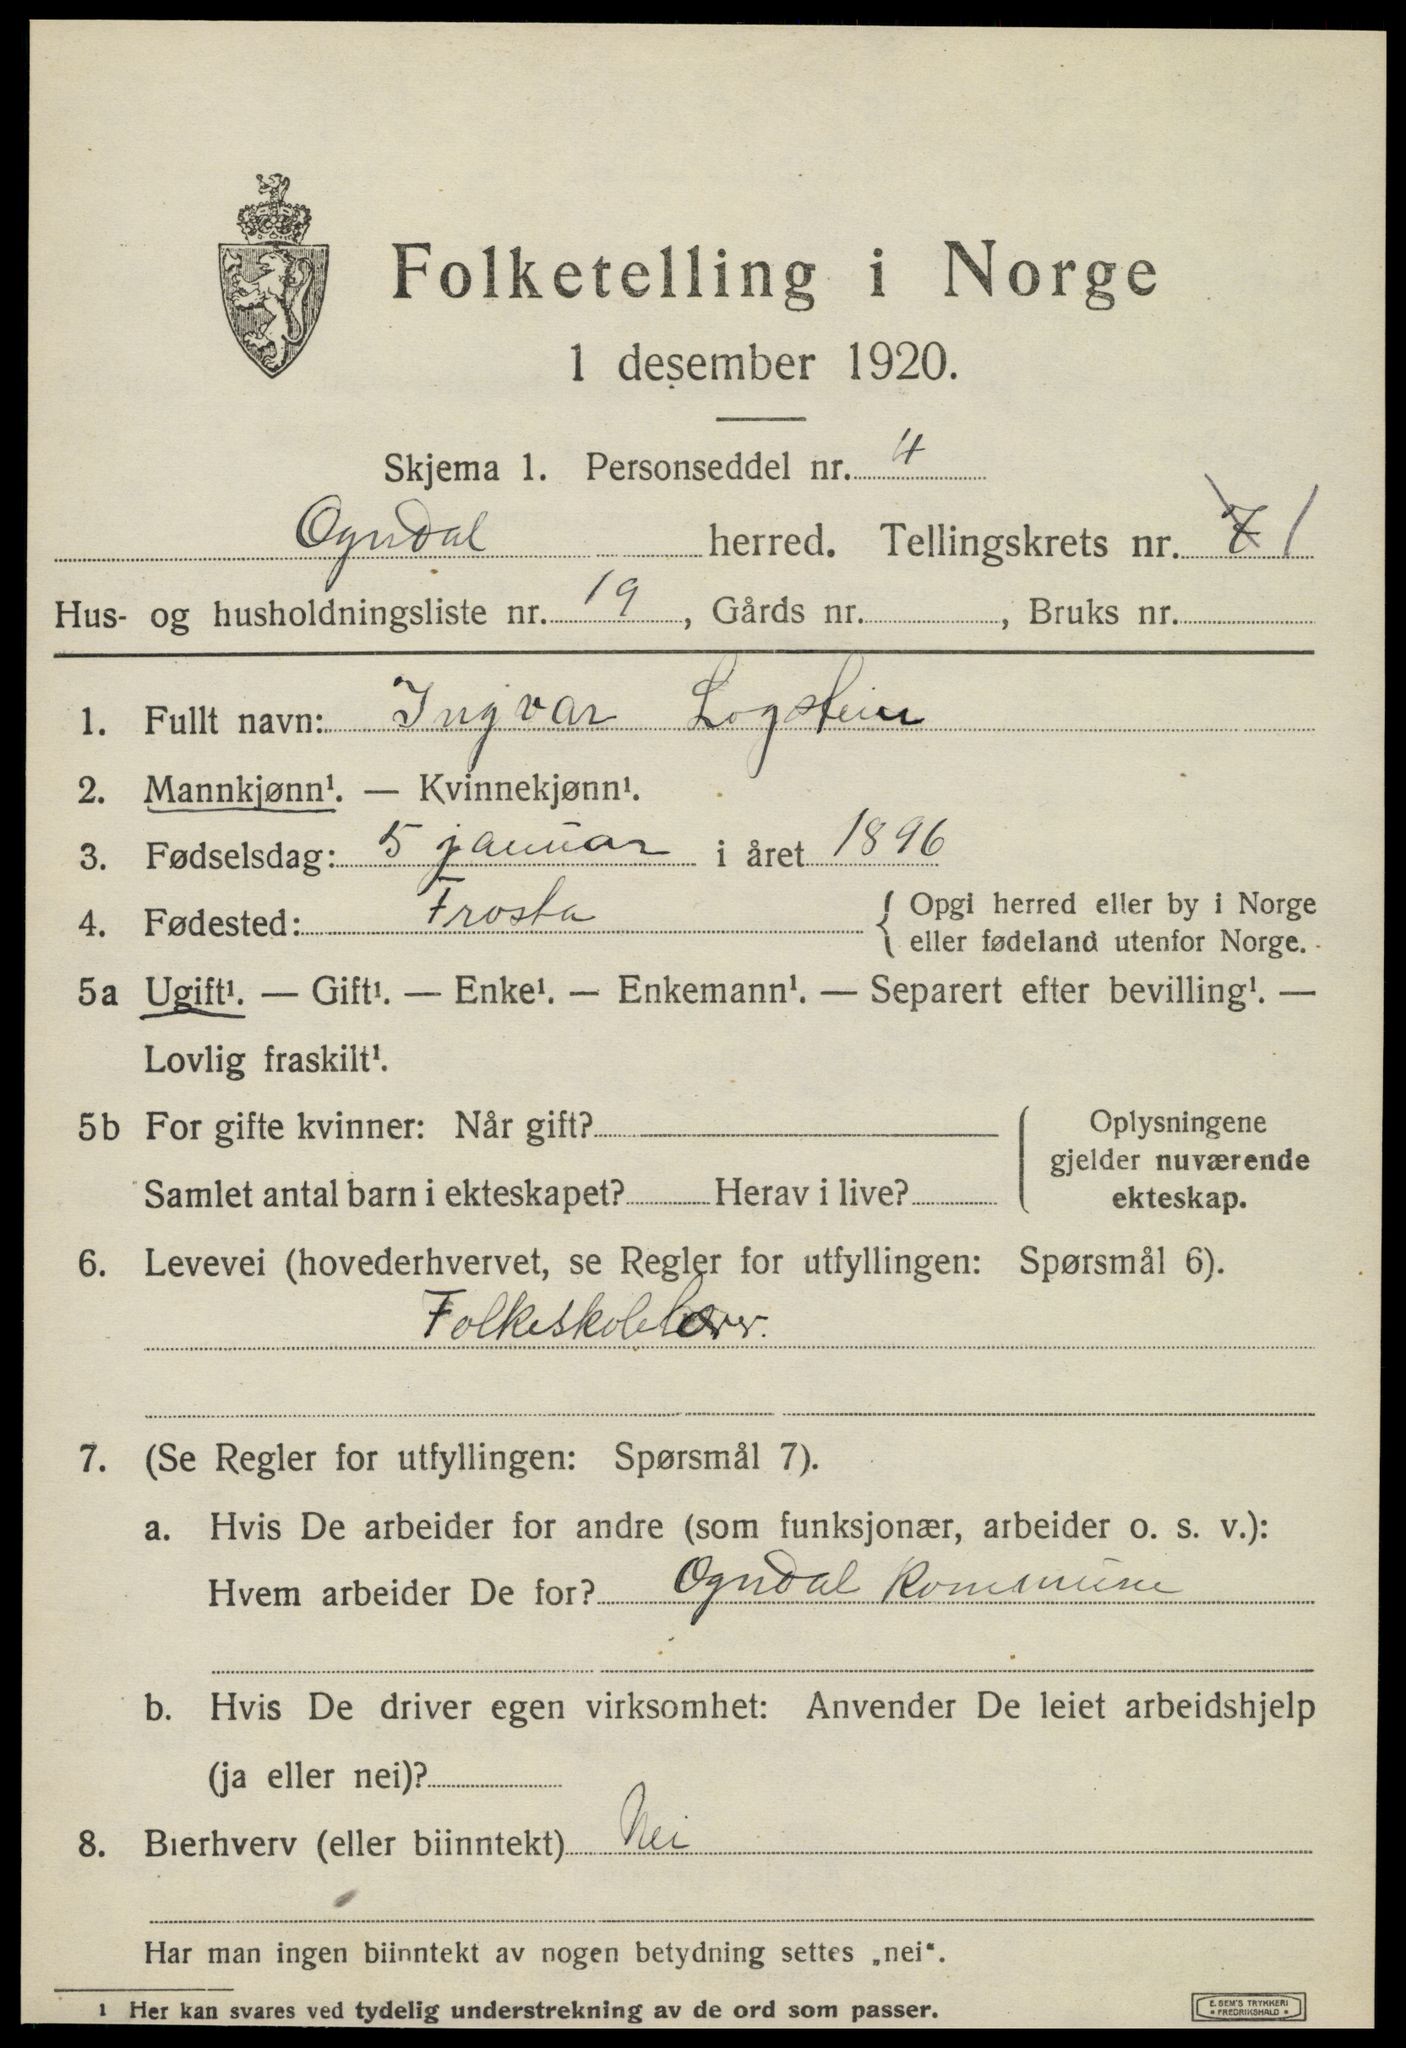 Folketelling i Norge
1 desember 1920.
Skjema 1. Personseddel nr. 4
Ogndal herred. Tellingskrets nr. 7 1
Hus- og husholdningsliste nr. 19, Gårds nr. , Bruks nr.
1. Fullt navn: Ingvar Logstein
2. Mannkjønn¹. — Kvinnekjønn¹.
3. Fødselsdag: 5 januar i året 1896
4. Fødested: Frosta { Opgi herred eller by i Norge
eller fødeland utenfor Norge.
5a Ugift¹. — Gift¹. — Enke¹. — Enkemann¹. — Separert efter bevilling¹. —
Lovlig fraskilt¹.
5b For gifte kvinner: Når gift? { Oplysningene
gjelder nuværende
Samlet antal barn i ekteskapet? Herav i live? ekteskap.
6. Levevei (hovederhvervet, se Regler for utfyllingen: Spørsmål 6).
Folkeskolelærer.
7. (Se Regler for utfyllingen: Spørsmål 7).
a. Hvis De arbeider for andre (som funksjonær, arbeider o. s. v.):
Hvem arbeider De for? Ogndal kommune
b. Hvis De driver egen virksomhet: Anvender De leiet arbeidshjelp
(ja eller nei)?
8. Bierhverv (eller biinntekt) Nei
Har man ingen biinntekt av nogen betydning settes „nei“.
1 Her kan svares ved tydelig understrekning av de ord som passer.
E. SEM'S TRYKKERI
* FREDRIKSHALD *